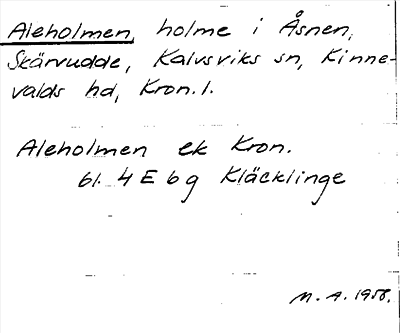 Aleholmen, holme i Åsnen,
Skärvudde, Kalvsviks sn, Kinne-
valds hd, Kron. l.
Aleholmen ek Kron.
bl. 4 E 6 g Kläcklinge
M. A. 1958.